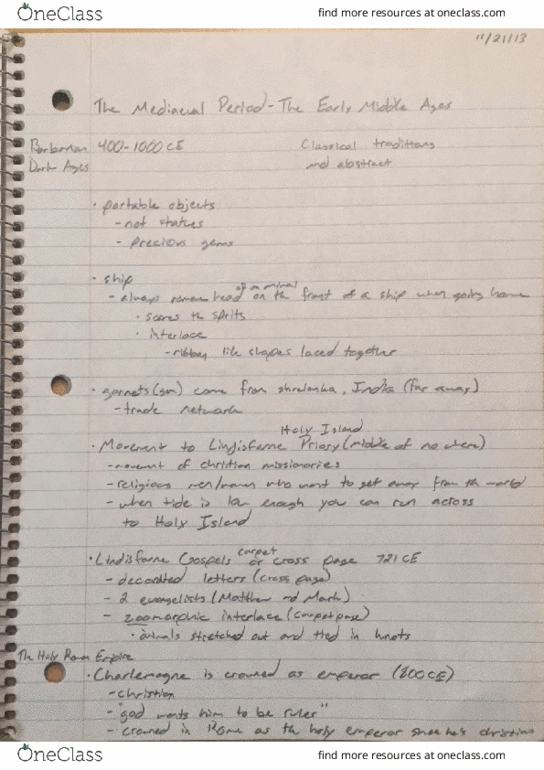 OneClass
find more resources at oneclass.com
11/21/13
The Mediaeval Period - The Early Middle Ages
Barbarian 400-1000 CE
Dark Ages
Classical traditions
and abstract
• portable objects
- not statues
- precious gems
• ship
of animal
- always remove head on the front of a ship when going home
• scares th spirits
• interlace
- ribbon like shapes laced together
• garnets (gem) come from , India (far away)
- trade network
Holy Island
• Movement to Lindisfarne Priory (middle of no where)
- movement of christian missionaries
- religious men/women who want to get away from th world
- when tide is low enough you can run across
to Holy Island
carpet
• Lindisfarne Gospels or cross page 721 CE
- decorated letters (cross page)
- 2 evangelists (Matthew nd Mark)
- zoomorphic interlace (carpet page)
• animals stretched out and tied in knots
The Holy Roman Empire
• Charlemagne is crowned as emperor (800 CE)
- christian
- "god wants him to be ruler"
- crowned in Rome as th holy emperor he's christian
OneClass
find more resources at oneclass.com